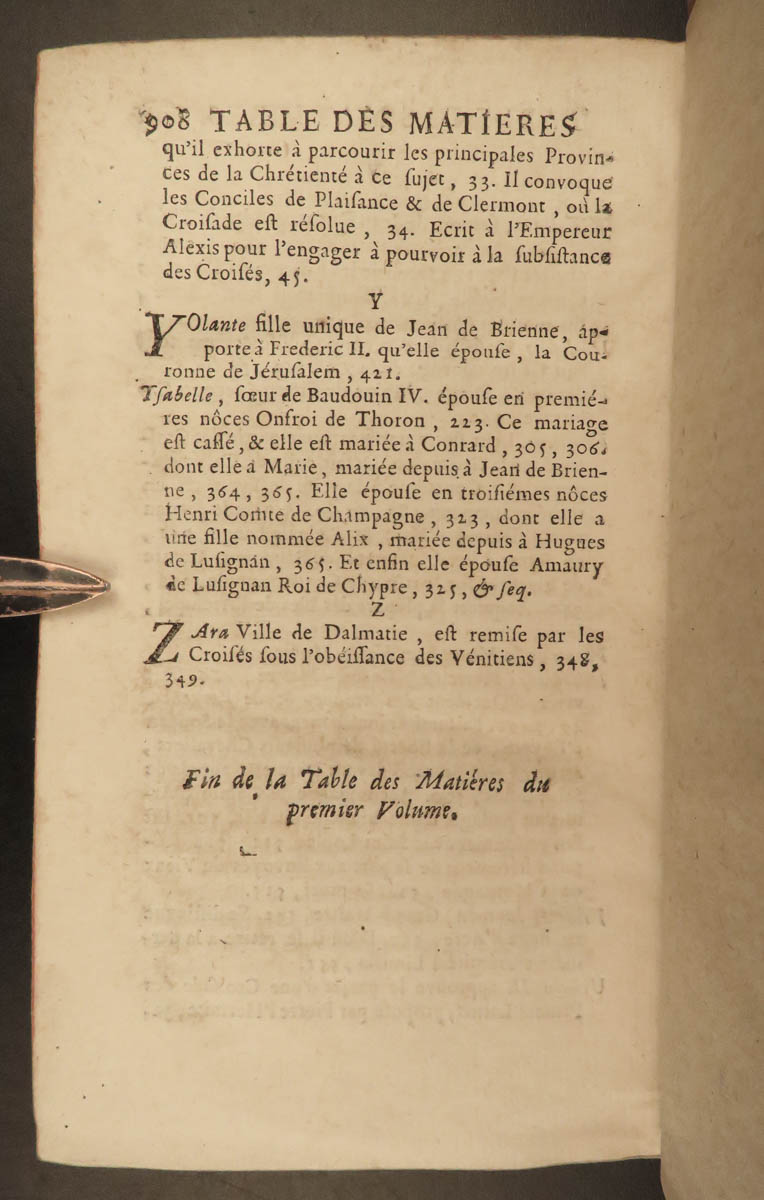 908 TABLE DES MATIERES
qu'il exhorte à parcourir les principales Provin-
ces de la Chrétienté à ce ſujet, 33. Il convoque
les Conciles de Plaiſance & de Clermont, où la
Croiſade eſt réſolue, 34. Ecrit à l'Empereur
Alexis pour l'engager à pourvoir à la ſubſiſtance
des Croiſés, 45.
Y
YOlante fille unique de Jean de Brienne, ap-
porte à Frederic II. qu'elle épouſe, la Cou-
ronne de Jéruſalem, 421.
Yſabelle, ſœur de Baudouin IV. épouſe en premié-
res nôces Onfroi de Thoron, 223. Ce mariage
eſt caſſé, & elle eſt mariée à Conrard, 305, 306.
dont elle a Marie, mariée depuis à Jean de Brien-
ne, 364, 365. Elle épouſe en troiſiémes nôces
Henri Comte de Champagne, 323, dont elle a
une fille nommée Alix, mariée depuis à Hugues
de Luſignan, 365. Et enfin elle épouſe Amaury
de Luſignan Roi de Chypre, 325, & ſeq.
Z
ZAra Ville de Dalmatie, eſt remiſe par les
Croiſés ſous l'obéiſſance des Vénitiens, 348,
349.
Fin de la Table des Matiéres du
premier Volume.